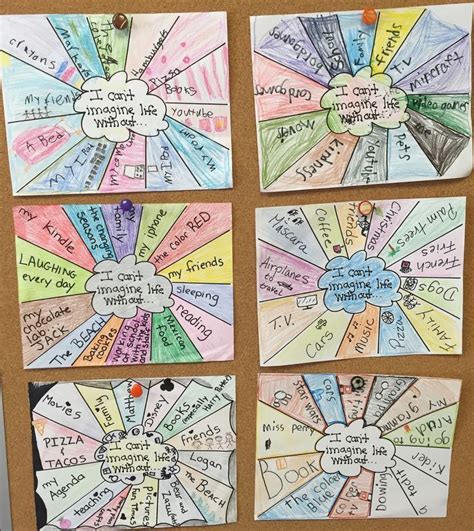 crayons
Markers
Hamburgers
Pizza
Books
Youtube
my Wii
My iPad
A Bed
my
I can't
imagine life
without...
Family
friends
T.V
minecraft
Video games
pets
Youtube
Kindness
Movies
I can't
imagine life
without...
my Kindle
the changing
seasons
my
family
my iphone
the color RED
my friends
sleeping
reading
Mexican
food
working
at school
with the kids
and staff
Baking
cookies
The BEACH
my
chocolate
lab
JACK
LAUGHING
every day
I can't
imagine life
without...
MASCARA
Coffee
friends
Christmas
Palm trees
French
Fries
Dogs
FAMILY
Pizza
music
Cars
T.V.
Airplanes
to
travel
I can't
imagine life
without...
Movies
Family
Matt
Disney
BOOKS
especially
Harry Potter
Friends
Logan
The BEACH
pictures
Fun Times
teaching
my Agenda
PIZZA
& TACOS
I can't
imagine life
without...
Miss Perry
star wars
cars
my grammy
going to
Book
the color
Blue
I can't
imagine life
without...